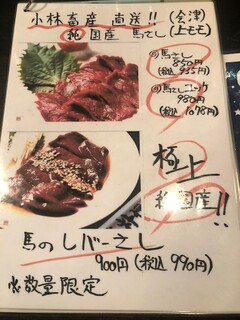 小林畜産 直送!! (会津)
純国産 馬さし (上モモ)
馬さし
850円
(税込 935円)
馬さしユッケ
980円
(税込 1078円)
極上
純国産!!
馬のレバーさし
900円 (税込 990円)
※数量限定